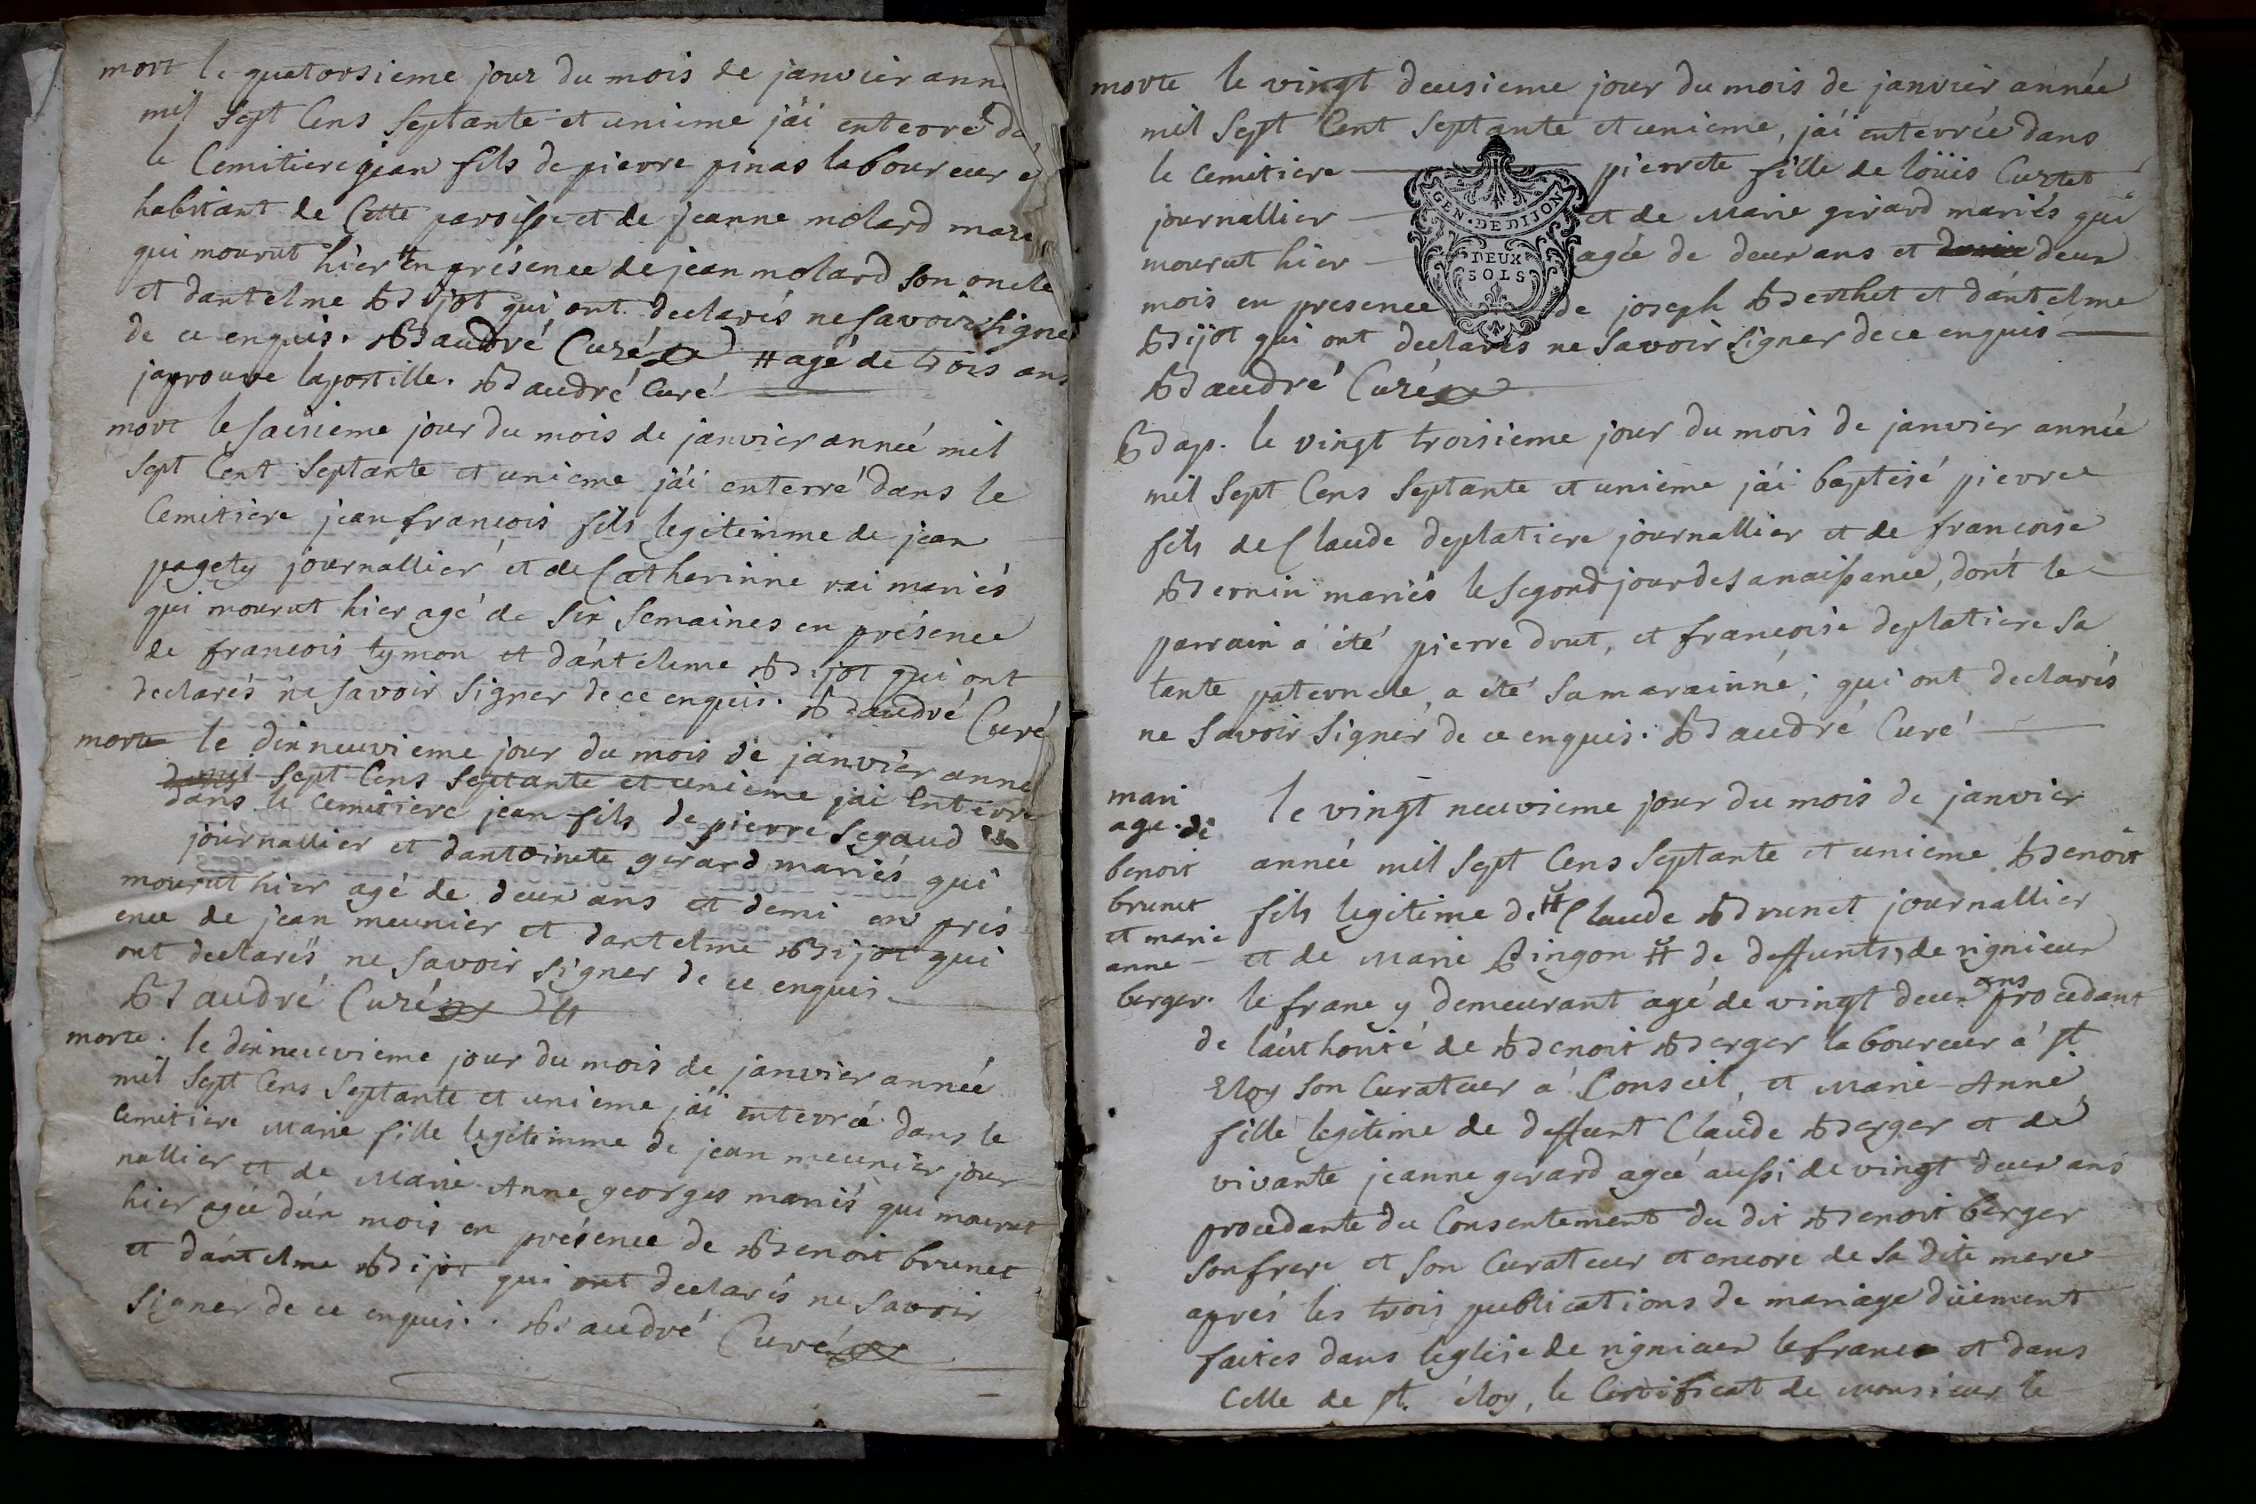 mort le quatorsieme jour du mois de janvier anné
mil sept Cens septante et unieme j'ai enterré da
le Cemitiere jean fils de pierre pinas laboureur
habitant de Cette paroisse et de jeanne molard mari
qui mourut hier # en présence de jean molard son oncle
et dantelme Bijot qui ont declarés ne savoir signer
de ce enquis. Baudré Curé # agé de trois ans
japrouve lapostille. Baudré Curé
mort le saisieme jour du mois de janvier anneé mil
sept Cent septante et unieme j'ai enterré dans le
Cemitiere jean francois fils legitimme de jean
pagety journallier et de Catherinne rai mariés
qui mourut hier agé de six semaines en présence
de francois tymon et d'antelme Bijot qui ont
declarés ne savoir signer de ce enquis. Baudré Curé
morte le dix neuvieme jour du mois de janvier anneé
sept Cens septante et unieme jai Enterré
dans le Cemitiere jean fils de pierre segaud
journallier et dantoinete gerard mariés qui
mourut hier agé de deux ans et demi en prés
ence de jean meunier et dantelme Bijot qui
ont declarés ne savoir signer de ce enquis
Baudré Curé
morte. le dix neuvieme jour du mois de janvier anneé
mil sept Cens septante et unieme j'ai enterreé dans le
Cemitiere Marie fille legitimme de jean meunier jour
nallier et de Marie Anne georges mariés qui mourut
hier ageé d'un mois en présence de Benoit brunet
et d'antelme Bijot qui ont declarés ne savoir
signer de ce enquis. Baudré Curé
morte le vingt deusieme jour du mois de janvier anneé
mil sept Cent septante et unieme, j'ai enterreé dans
le Cemitiere pierrete fille de loüis Curtet
journallier et de Marie girard mariés qui
mourut hier ageé de deux ans et deux
mois en presence de joseph Berthet et d'antelme
Bijot qui ont declarés ne savoir signer de ce enquis
GEN. DE DIJON
DEUX
SOLS
Baudré Curé
Bap. le vingt troisieme jour du mois de janvier anneé
mil sept Cens septante et unieme j'ai baptisé pierre
fils de Claude deplatiere journallier et de francoise
Bernin mariés le segond jour de sa naissance, dont le
parrain a été pierre drut, et francoise deplatiere sa
tante paternele, a été sa marainne; qui ont declarés
ne savoir signer de ce enquis. Baudré Curé
mari
age. de
benoit
brunet
et marie
anne
berger.
le vingt neuvieme jour du mois de janvier
anneé mil sept Cens septante et unieme Benoit
fils legitime de # Claude Brunet journallier
et de Marie Pingon # de deffunts, de rignieux
le franc y demeurant agé de vingt deux ans procedant
de l'authorité de Benoit Berger laboureur a st
Eloy son Curateur a Conseil, et Marie-Anne
fille legitime de deffunt Claude Berger et de
vivante jeanne gerard ageé aussi de vingt deux ans
procedante du Consentement du dit Benoit berger
son frere et son Curateur et encore de sa dite mere
aprés les trois publications de mariage düement
faites dans leglise de rignieux le franc et dans
Celle de st. éloy, le Certificat de Monsieur le